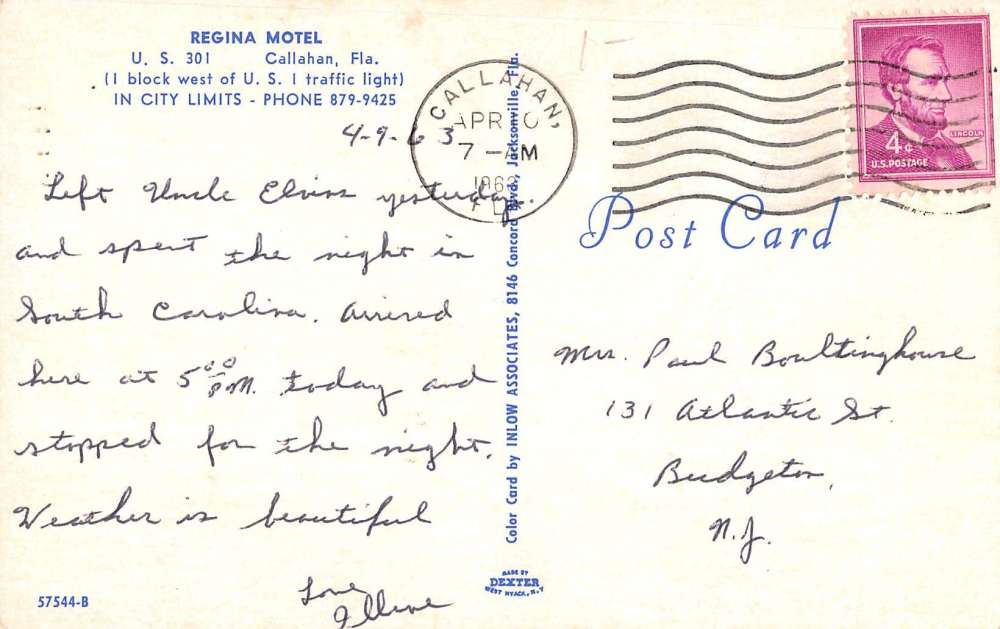 REGINA MOTEL
U. S. 301 Callahan, Fla.
(1 block west of U. S. 1 traffic light)
IN CITY LIMITS - PHONE 879-9425
4-9-63
Left Uncle Elvins yesterday.
and spent the night in
South Carolina. Arrived
here at 5:00 P.M. today and
stopped for the night.
Weather is beautiful
Love
57544-B
Color Card by INLOW ASSOCIATES, 8146 Concord Blvd., Jacksonville, Fla.
MADE BY
DEXTER
WEST NYACK, N.Y.
CALLAHAN,
APR 10
7 - AM
LINCOLN
4¢
U.S. POSTAGE
Post Card
Mrs. Paul Boultinghouse
131 Atlantic St.
Bridgeton,
N.J.